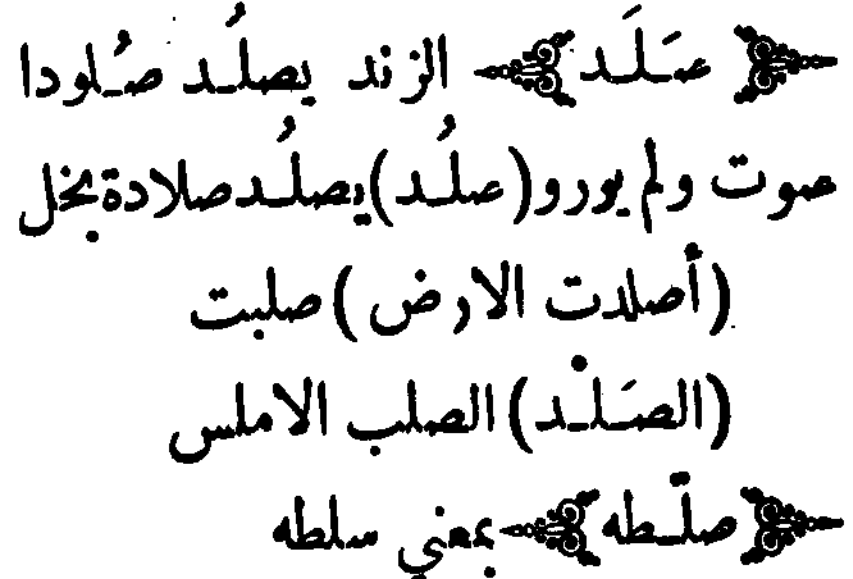 ﴿ صَلَد ﴾ الزند يصلُد صُلودا
صوت ولم يورو (صلُد) يصلُد صلادة بخل
(أصلدت الارض) صلبت
(الصَلْد) الصلب الاملس
﴿ صلّطه ﴾ بمعني سلطه